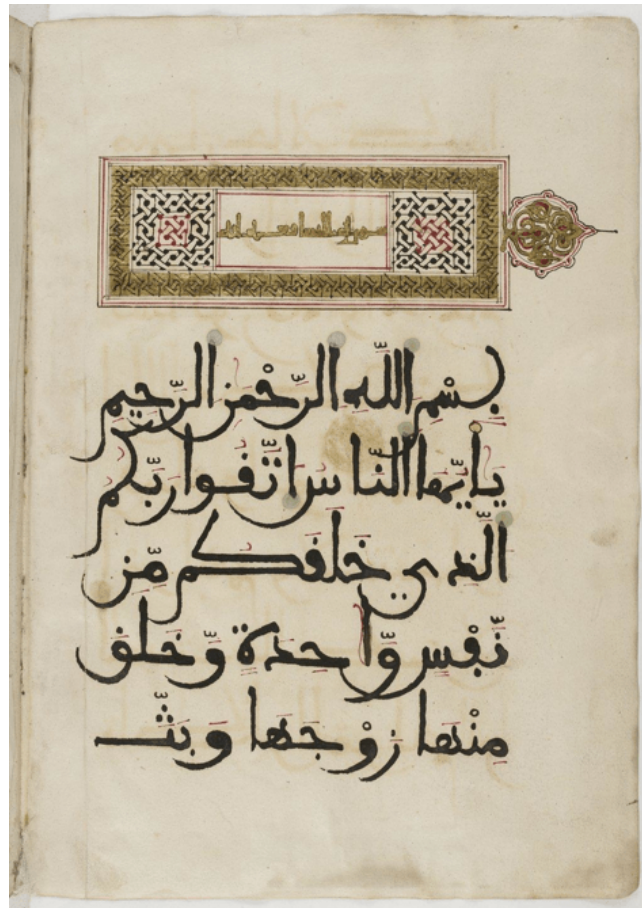 سورة النسا
بِسْمِ اللَّهِ الرَّحْمَنِ الرَّحِيمِ
يَأَيُّهَا النَّاسُ اتَّقُوا رَبَّكُمُ
الَّذِي خَلَقَكُم مِّن
نَّفْسٍ وَّاحِدَةٍ وَّخَلَقَ
مِنْهَا زَوْجَهَا وَبَثَّ